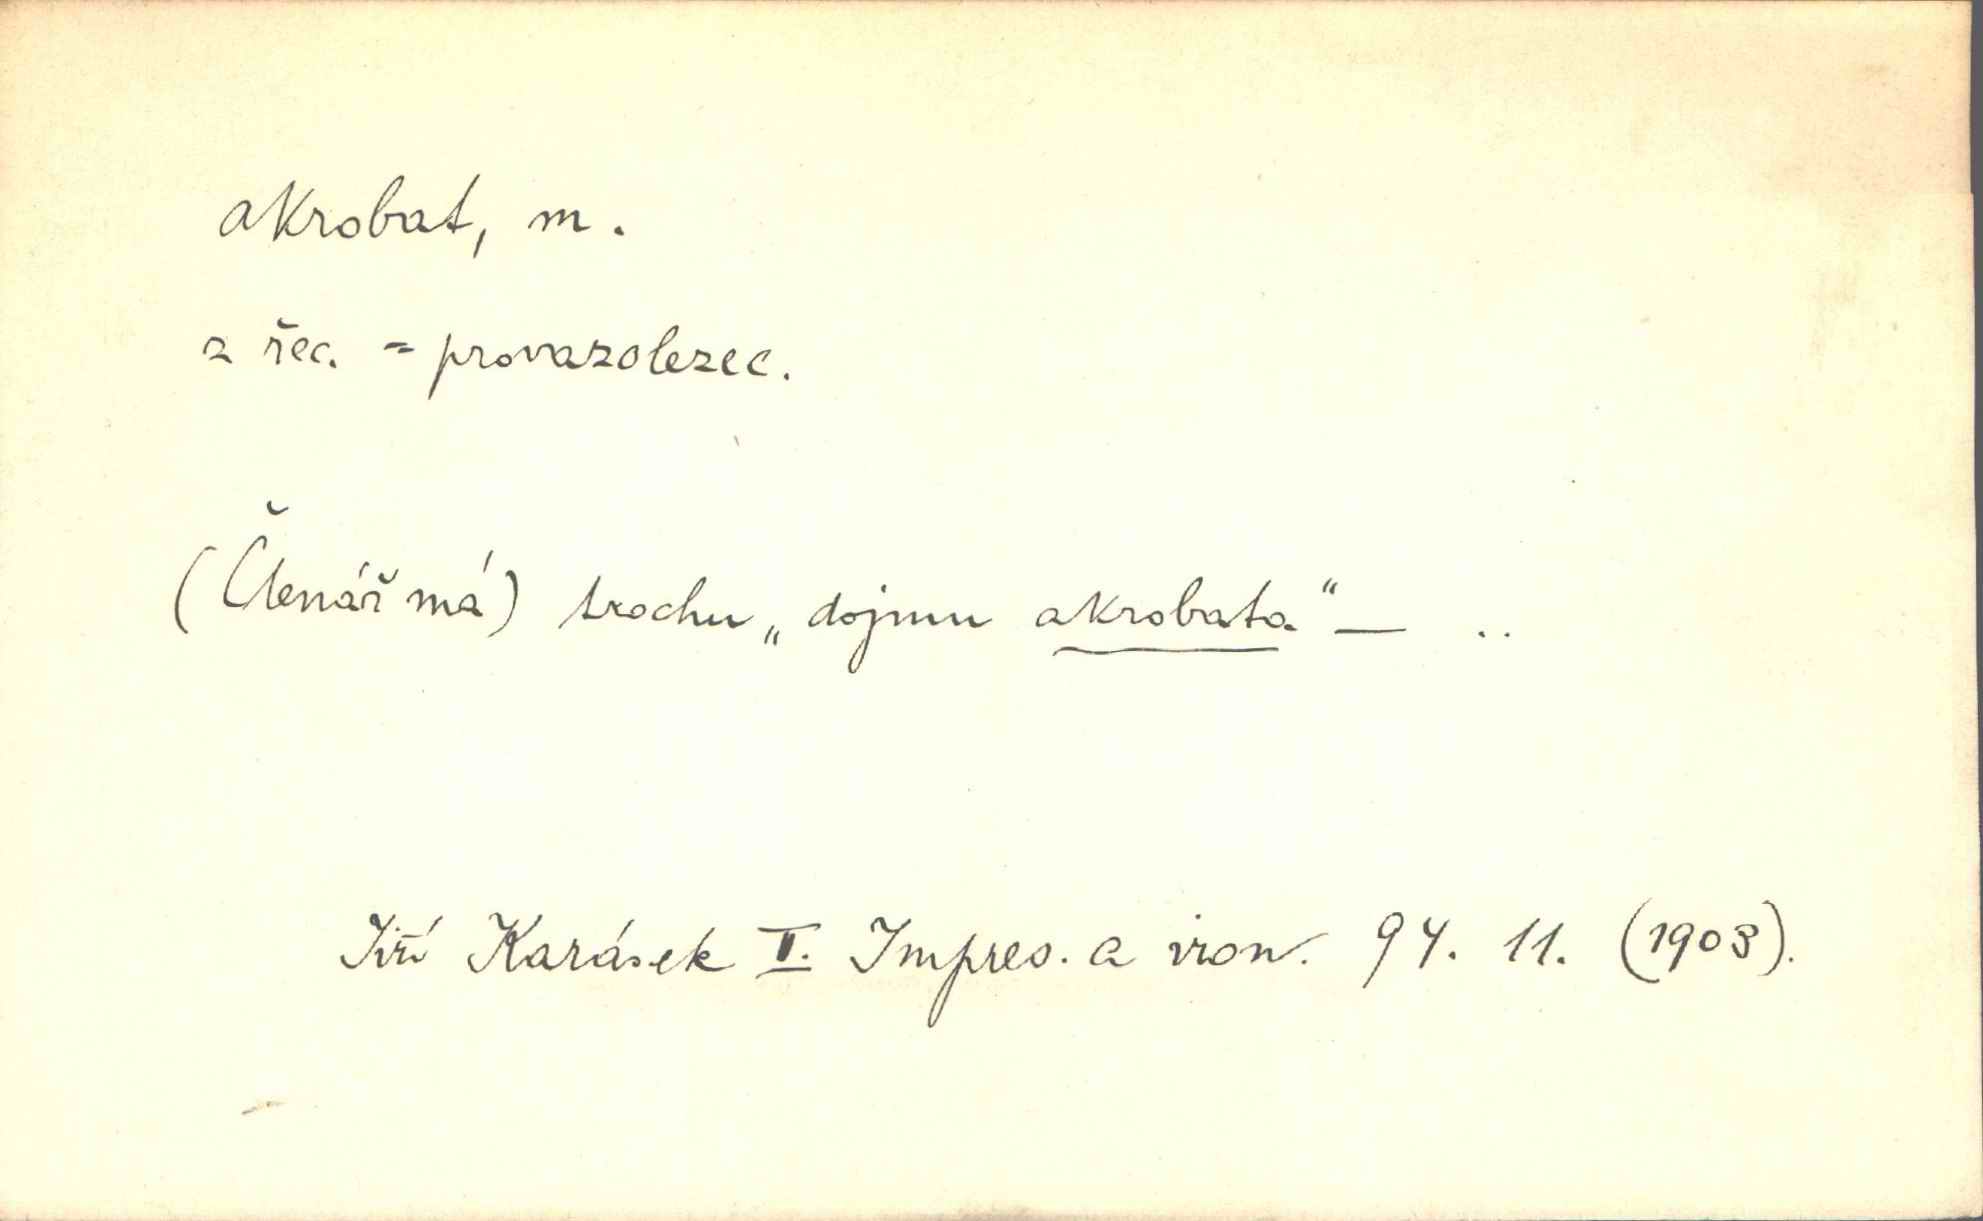 akrobat, m.
z řec. = provazolezec.
(Čtenář má) trochu „dojmu akrobata“ — ..
Jiří Karásek II. Impres. a iron. 94. 11. (1903).